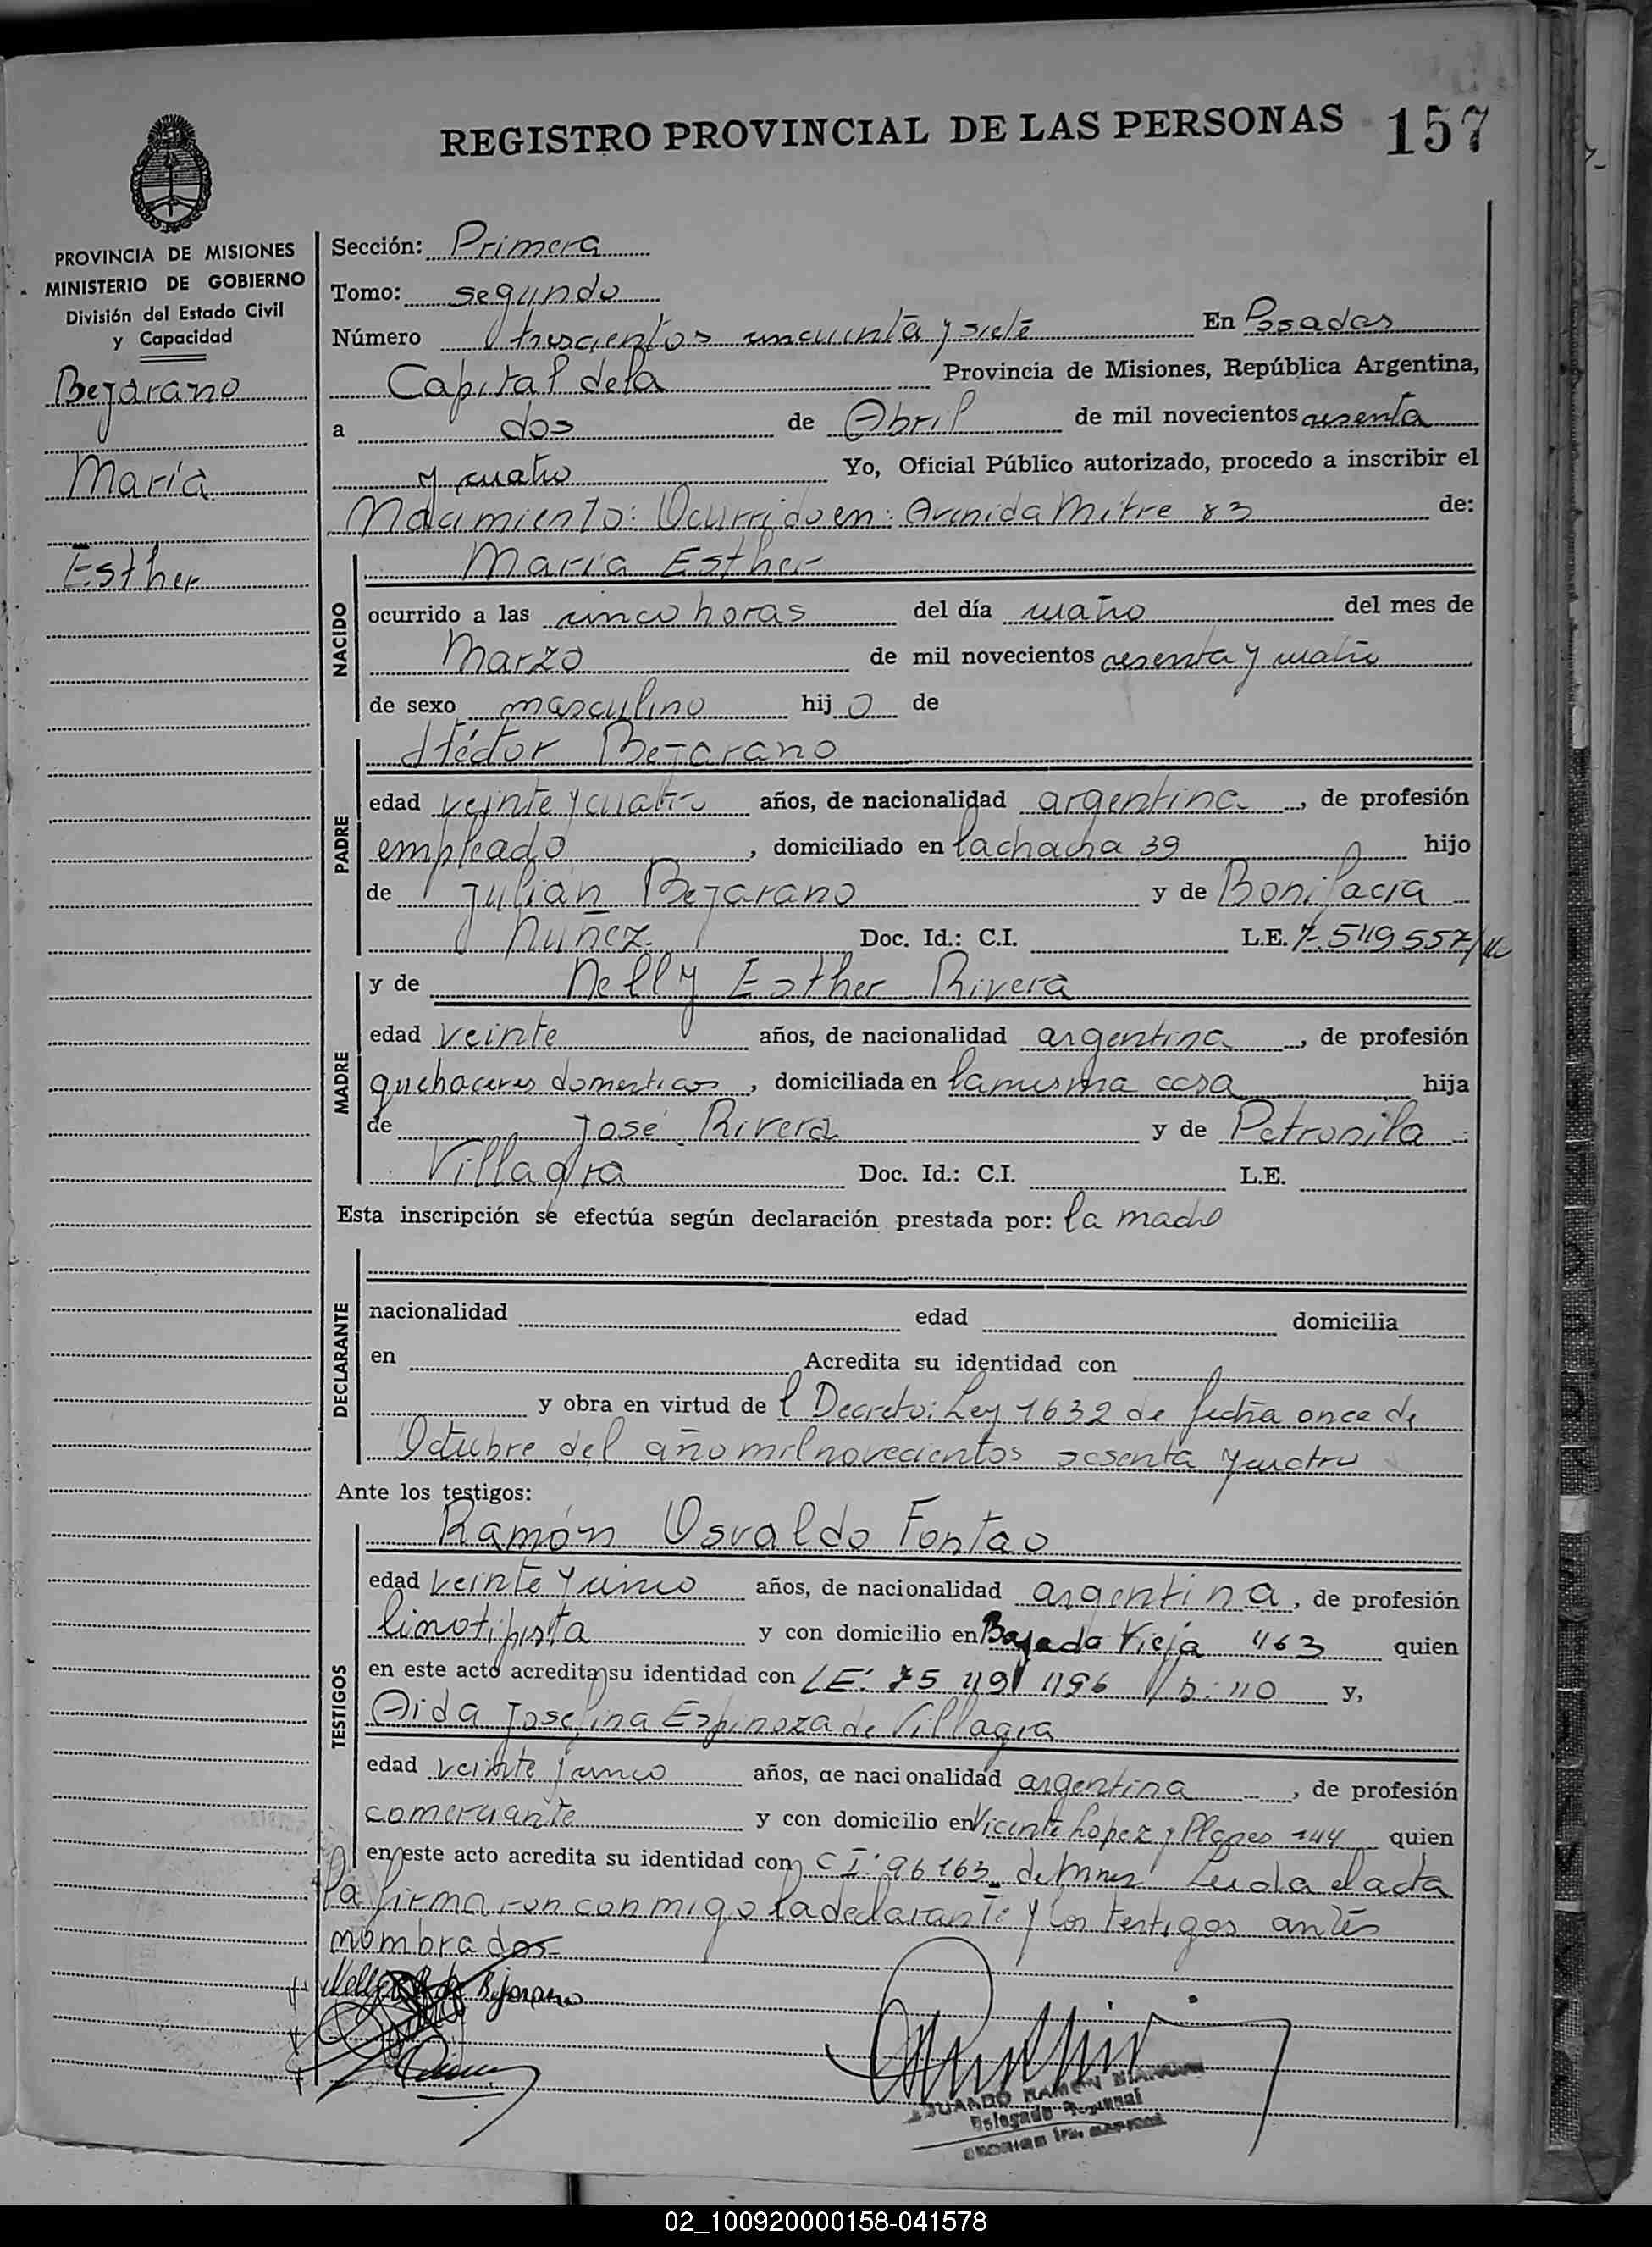 REGISTRO PROVINCIAL DE LAS PERSONAS 157
PROVINCIA DE MISIONES
MINISTERIO DE GOBIERNO
División del Estado Civil
y Capacidad
Bejarano
María
Esther
Sección: Primera
Tomo: segundo
Número trescientos cincuenta y siete En Posadas
Capital de la Provincia de Misiones, República Argentina,
a dos de Abril de mil novecientos sesenta
y cuatro Yo, Oficial Público autorizado, procedo a inscribir el
Nacimiento: Ocurrido en: Avenida Mitre 83 de:
NACIDO
María Esther
ocurrido a las cinco horas del día cuatro del mes de
Marzo de mil novecientos sesenta y cuatro
de sexo masculino hij o de
PADRE
Héctor Bejarano
edad veinte y cuatro años, de nacionalidad argentina, de profesión
empleado, domiciliado en Lachacha 39 hijo
de Julián Bejarano y de Bonifacia
Nuñez Doc. Id.: C.I. L.E. 7.549557/
MADRE
y de Nelly Esther Rivera
edad veinte años, de nacionalidad argentina, de profesión
quehaceres domesticos, domiciliada en la misma casa hija
de José Rivera y de Petronila
Villagra Doc. Id.: C.I. L.E.
Esta inscripción se efectúa según declaración prestada por: la madre
DECLARANTE
nacionalidad edad domicilia
en Acredita su identidad con
y obra en virtud de l Decreto: Ley 1632 de fecha once de
Octubre del año mil novecientos sesenta y cuatro
Ante los testigos:
TESTIGOS
Ramón Osvaldo Fontao
edad veinte y cinco años, de nacionalidad argentina, de profesión
linotipista y con domicilio en Bajada Vieja 463 quien
en este acto acredita su identidad con LE: y,
Aida Josefina Espinoza de Villagra
edad veinte y cinco años, de nacionalidad argentina, de profesión
comerciante y con domicilio en Vicente Lopez y Planes 144 quien
en este acto acredita su identidad con C I: 96163 de Mnes Leida el acta
la firmaron conmigo la declarante y los testigos antes
nombrados
Nelly R de Bejarano
EDUARDO RAMON
Delegado Regional
02_100920000158-041578